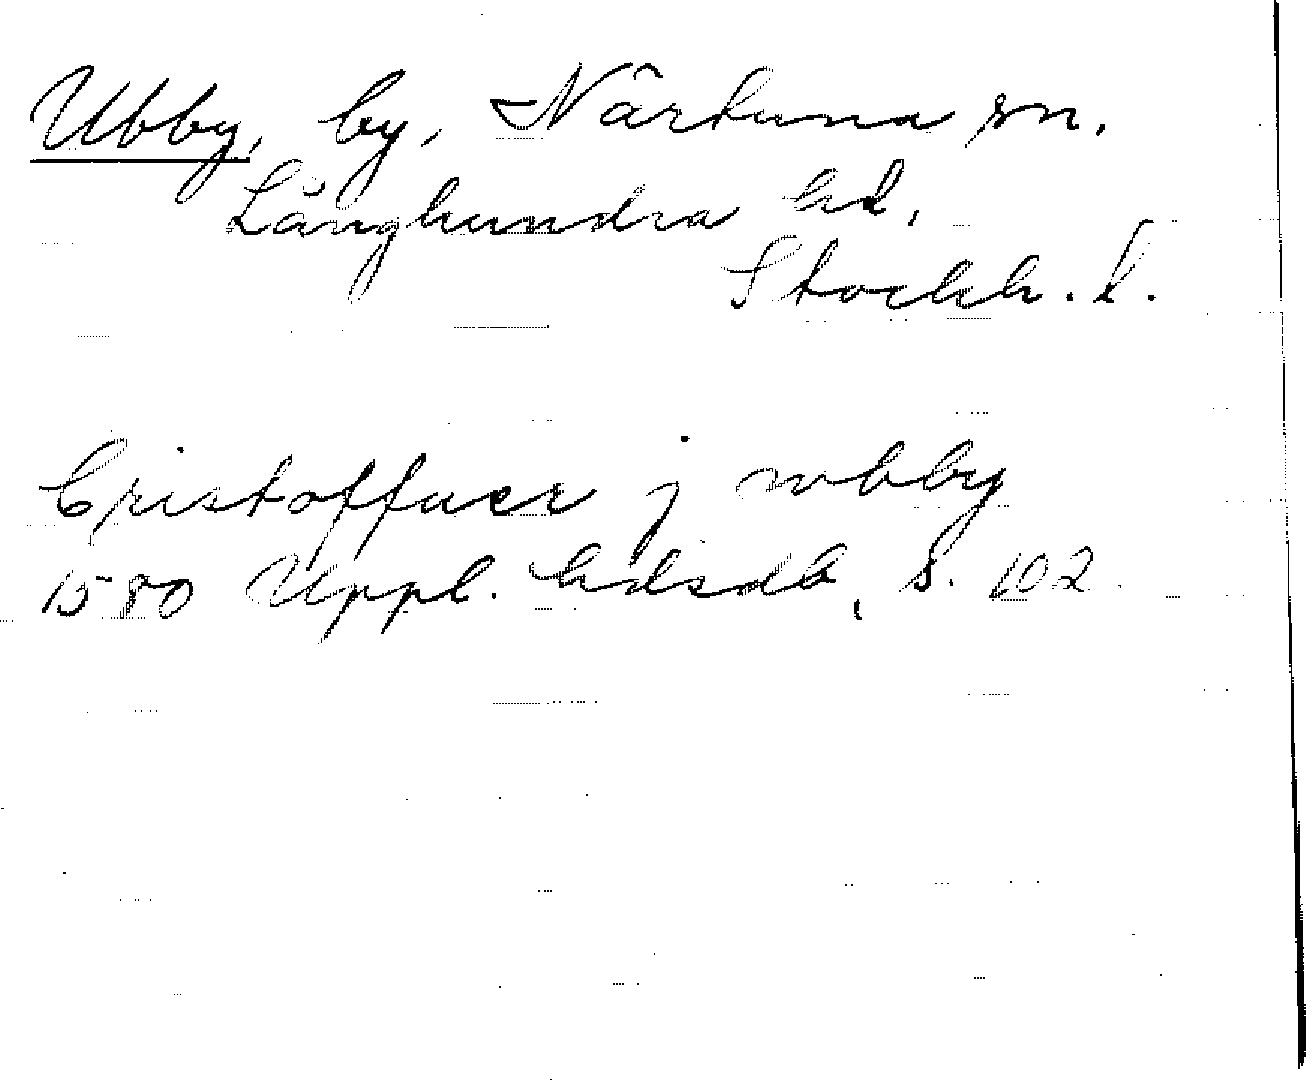 Ubby, by, Närtuna sn.
Långhundra hd,
Stockh. l.
Cristoffuer j wbby
1580 Uppl. hdsdb, s. 102.